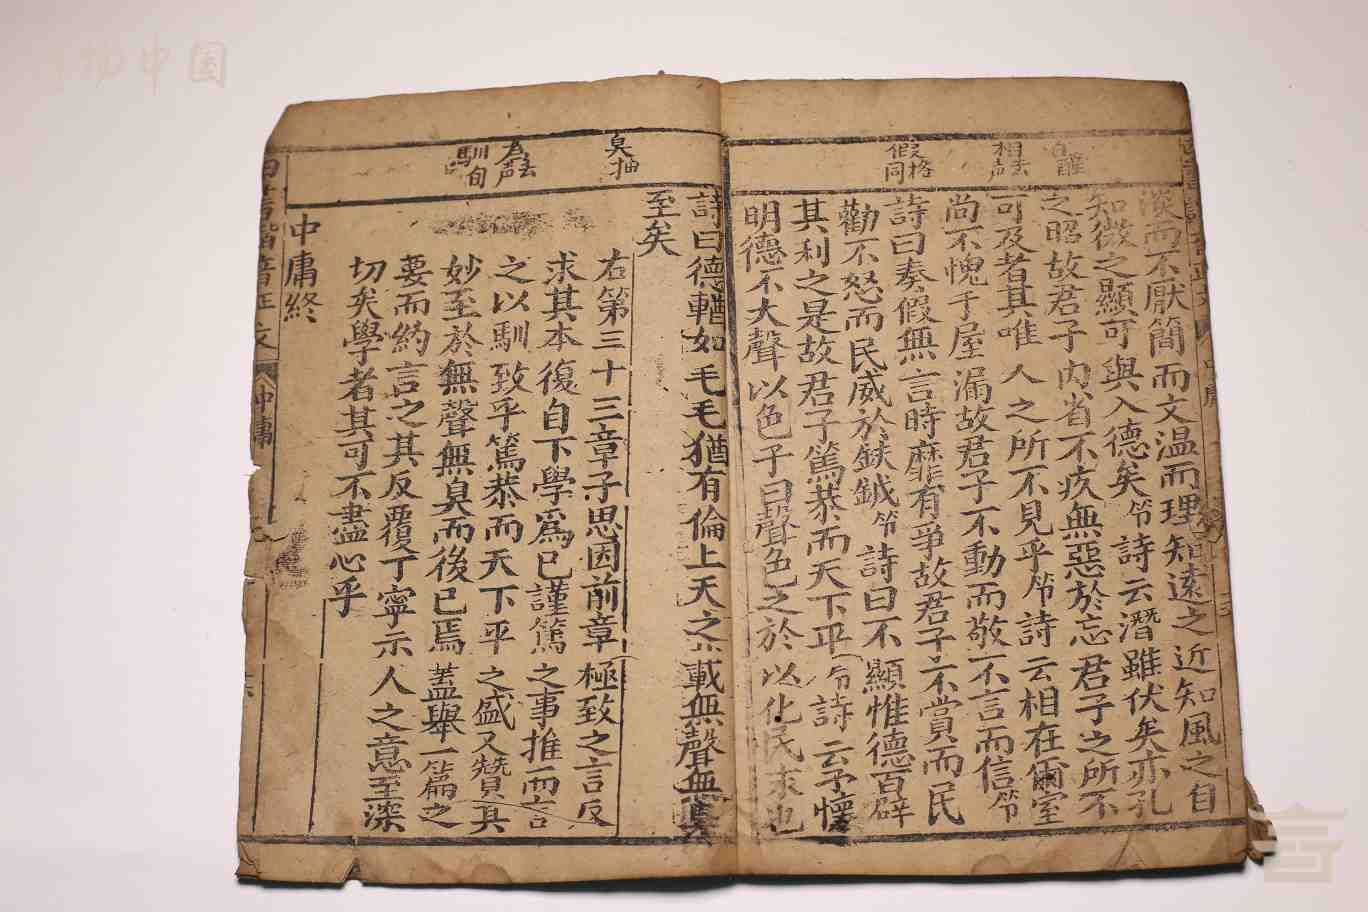 淡而不厭簡而文温而理知遠之近知風之自
知微之顯可與入德矣 詩云潛雖伏矣亦孔
之昭故君子内省不疚無惡於志君子之所不
可及者其唯人之所不見乎 詩云相在爾室
尚不愧于屋漏故君子不動而敬不言而信
詩曰奏假無言時靡有爭故君子不賞而民
勸不怒而民威於鈇鉞 詩曰不顯惟德百辟
其刑之是故君子篤恭而天下平 詩云予懷
明德不大聲以色子曰聲色之於以化民末也
相去声
假格同
詩曰德輶如毛毛猶有倫上天之載無聲無臭
至矣
右第三十三章子思因前章極致之言反
求其本復自下學爲己謹篤之事推而言
之以馴致乎篤恭而天下平之盛又贊其
妙至於無聲無臭而後已焉蓋舉一篇之
要而約言之其反覆丁寧示人之意至深
切矣學者其可不盡心乎
中庸終
臭抽
馴旬
中庸
物中国